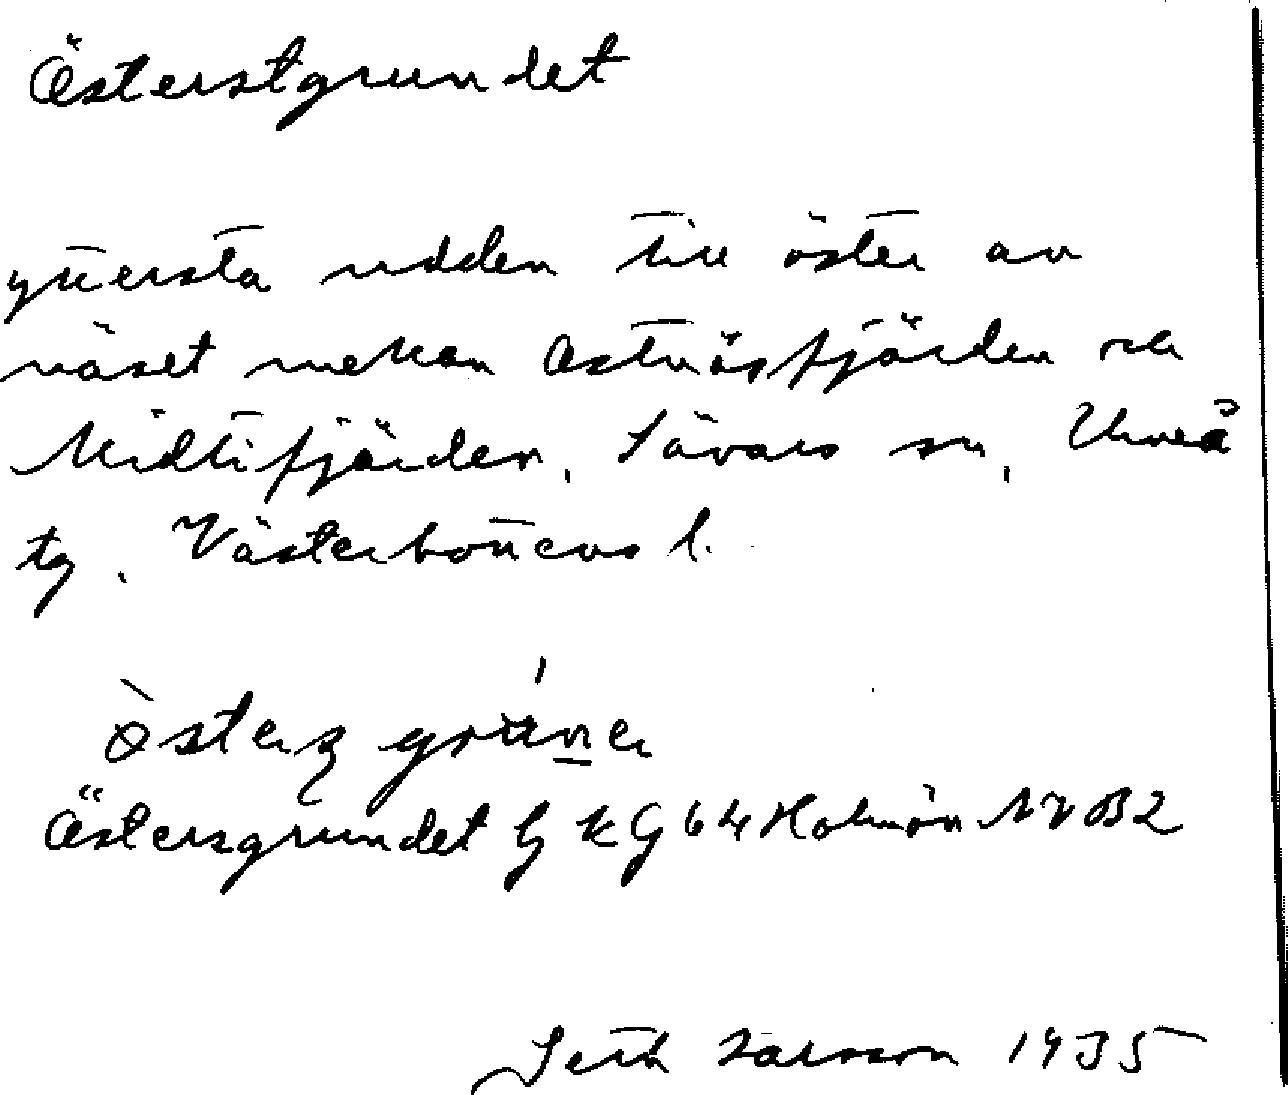 Österstgrundet
yttersta udden till öster av
näset mellan Östnäsfjärden och
Midtifjärden, Sävars sn, Umeå
tg. Västerbottens l.
Östersgrundet Gj KG 64 Holmön NV B2
Seth Larsson 1935